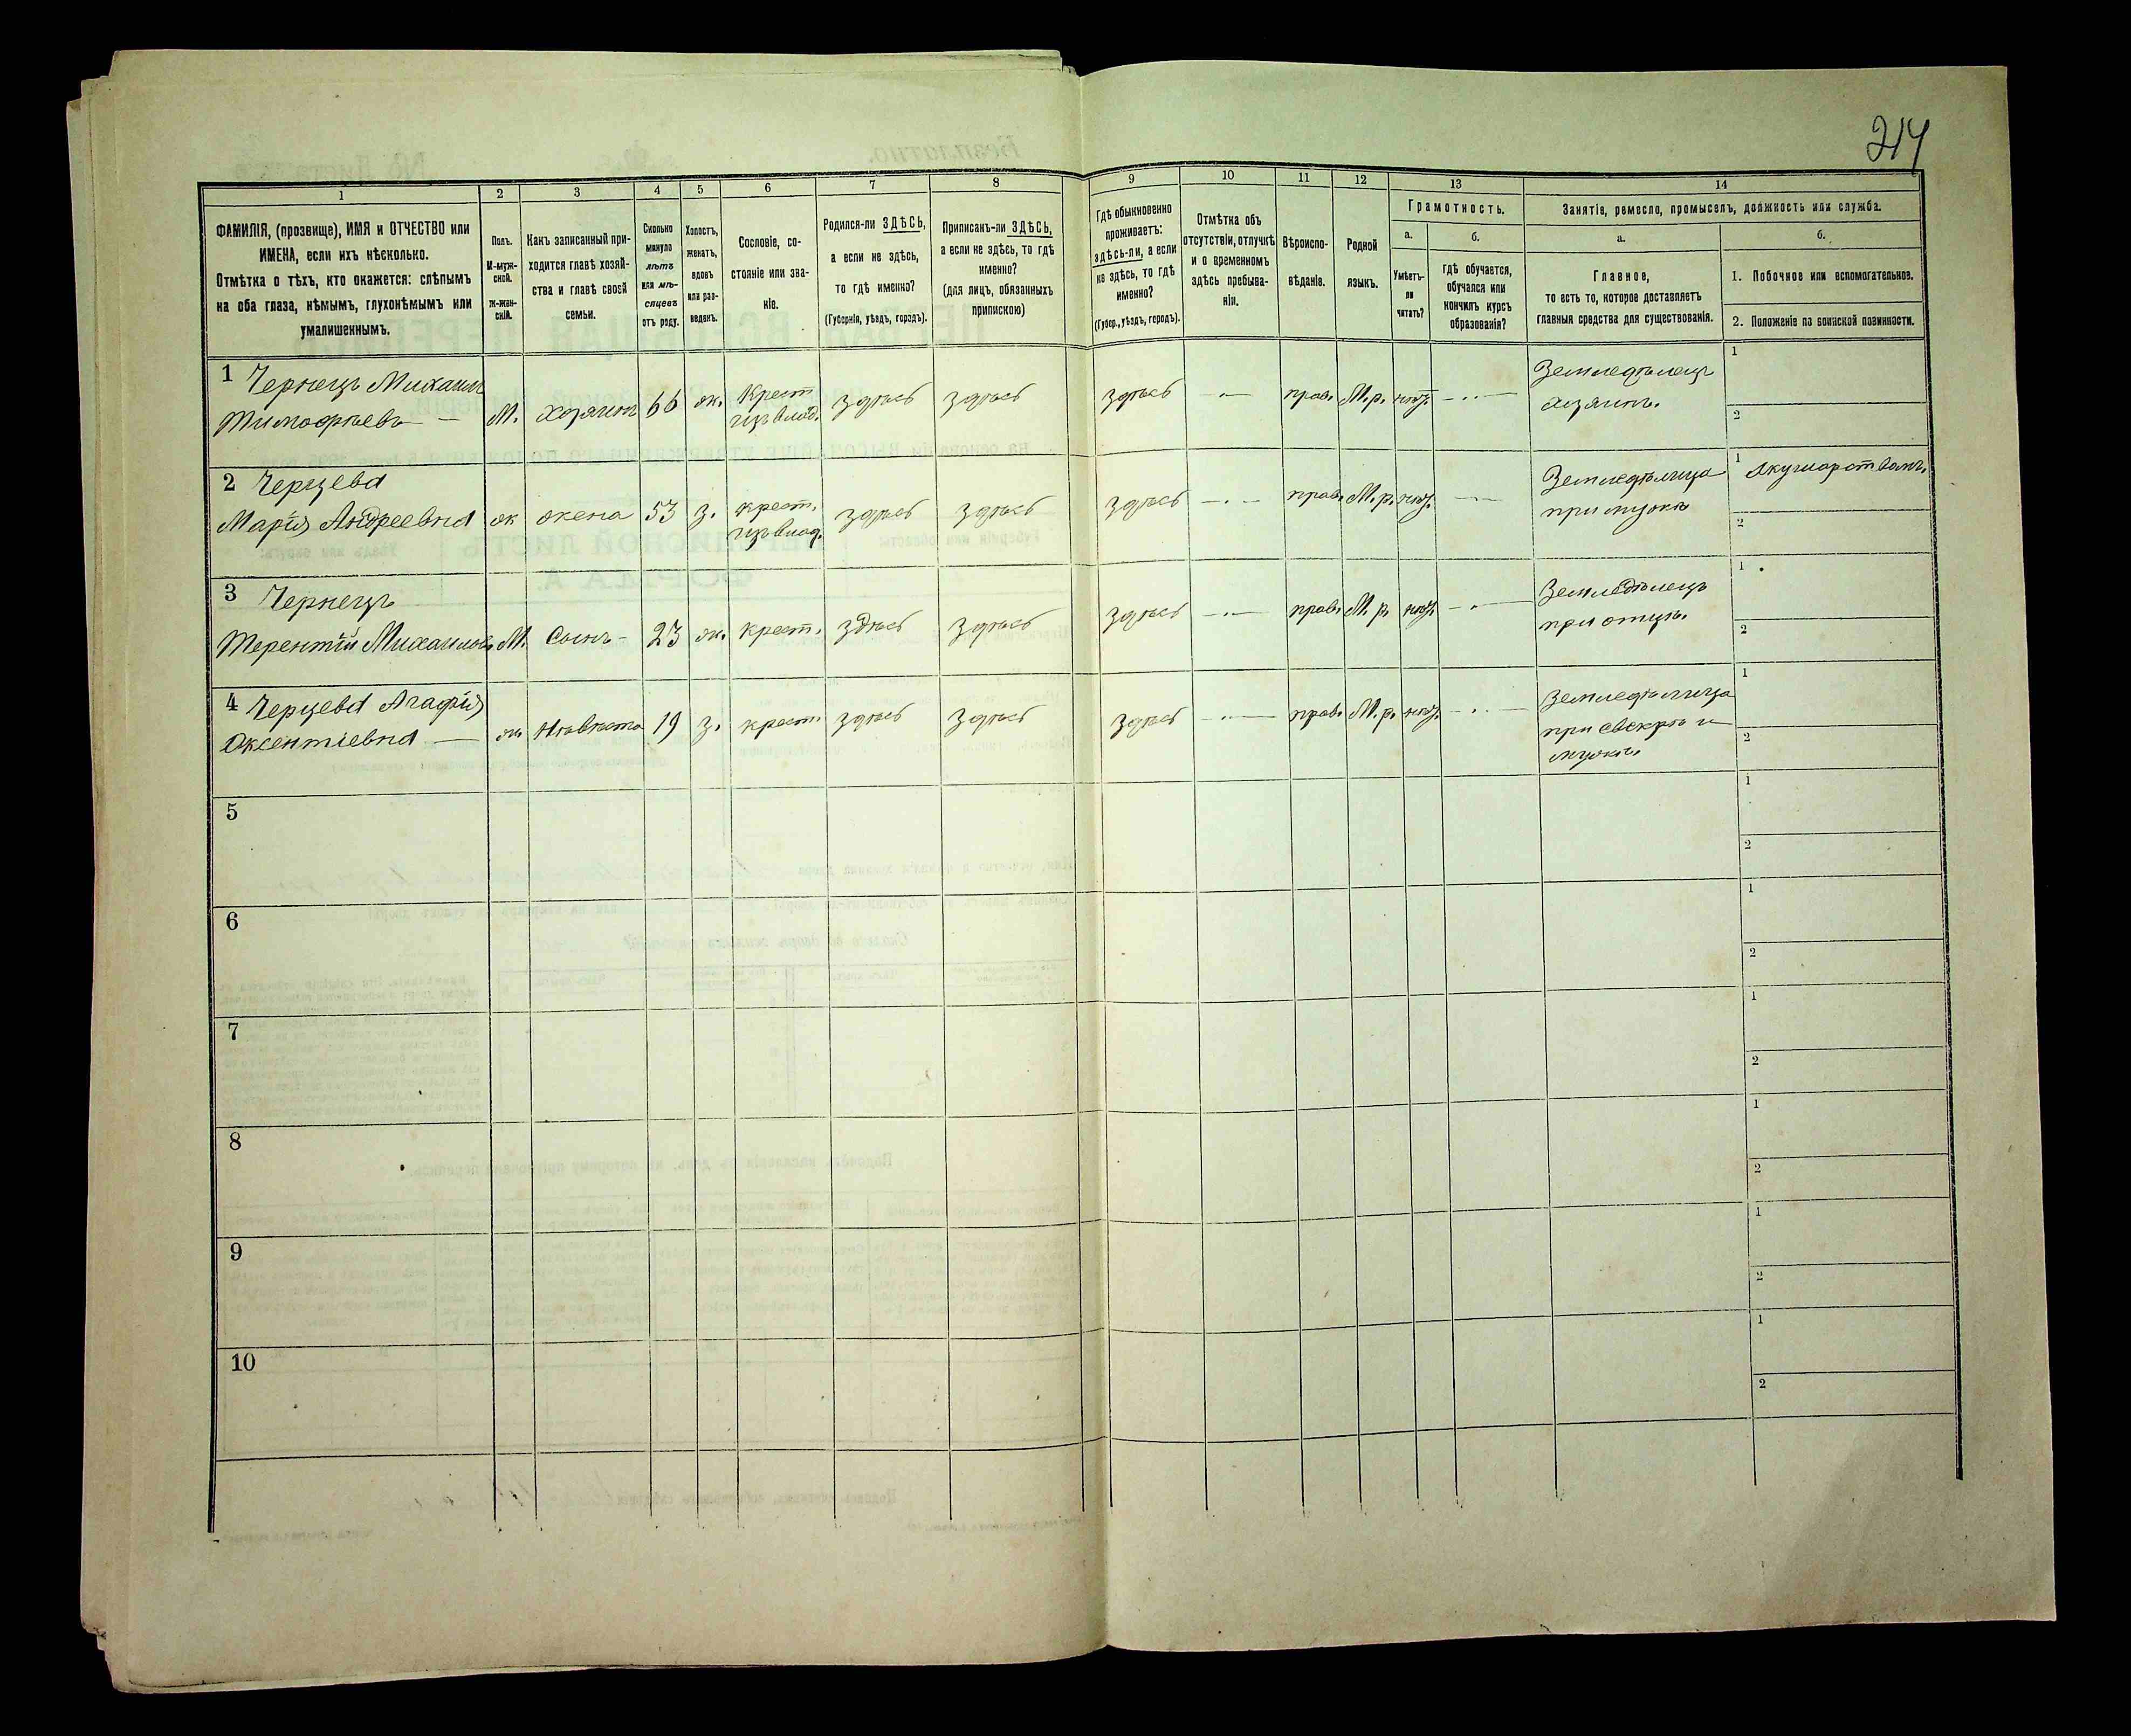 214
1 2 3 4 5 6 7 8 9 10 11 12 13 14
ФАМИЛІЯ, (прозвище), ИМЯ и ОТЧЕСТВО или
ИМЕНА, если ихъ нѣсколько.
Отмѣтка о тѣхъ, кто окажется: слѣпымъ
на оба глаза, нѣмымъ, глухонѣмымъ или
умалишеннымъ.
Полъ.
М-муж-
ской.
Ж-жен-
скій.
Какъ записанный при-
ходится главѣ хозяй-
ства и главѣ своей
семьи.
Сколько
минуло
лѣтъ
или мѣ-
сяцевъ
отъ роду.
Холостъ,
женатъ,
вдовъ
или раз-
веденъ.
Сословіе, со-
стояніе или зва-
ніе.
Родился-ли ЗДѢСЬ,
а если не здѣсь,
то гдѣ именно?
(Губернія, уѣздъ, городъ).
Приписанъ-ли ЗДѢСЬ,
а если не здѣсь, то гдѣ
именно?
(для лицъ, обязанныхъ
припискою)
Гдѣ обыкновенно
проживаетъ:
здѣсь-ли, а если
не здѣсь, то гдѣ
именно?
(Губер., уѣздъ, городъ).
Отмѣтка объ
отсутствіи, отлучкѣ
и о временномъ
здѣсь пребыва-
ніи.
Вѣроиспо-
вѣданіе.
Родной
языкъ.
Грамотность.
а.
Умѣетъ-
ли
читать?
б.
Гдѣ обучается,
обучался или
кончилъ курсъ
образованія?
Занятіе, ремесло, промыселъ, должность или служба.
а.
Главное,
то есть то, которое доставляетъ
главныя средства для существованія.
б.
1. Побочное или вспомогательное.
2. Положеніе по воинской повинности.
1 Чернецъ Михаилъ
Тимофѣевъ — М. хозяинъ 66 ж. Крест. изъ влад. здѣсь здѣсь здѣсь —.— прав. М.р. нѣт. —..— Земледѣлецъ
хозяинъ.
1
2
2 Черцева
Марія Андреевна ж жена 53 з. крест. изъ влад. здѣсь здѣсь здѣсь —.— прав. М.р. нѣт. —..— Земледѣлица
при мужѣ
1
2
3 Чернецъ
Терентій Михаиловъ М. Сынъ - 23 ж. крест. здѣсь здѣсь здѣсь —.— прав. М.р. нѣт. —.— Земледѣлецъ
при отцѣ.
1
2
4 Черцева Агафія
Оксентіевна — ж. Нѣвѣста 19 з. крест. здѣсь здѣсь здѣсь —..— прав. М.р. нѣт. —..— Земледѣлица
при свекрѣ и
мужѣ.
1
2
5
1
2
6
1
2
7
1
2
8
1
2
9
1
2
10
1
2